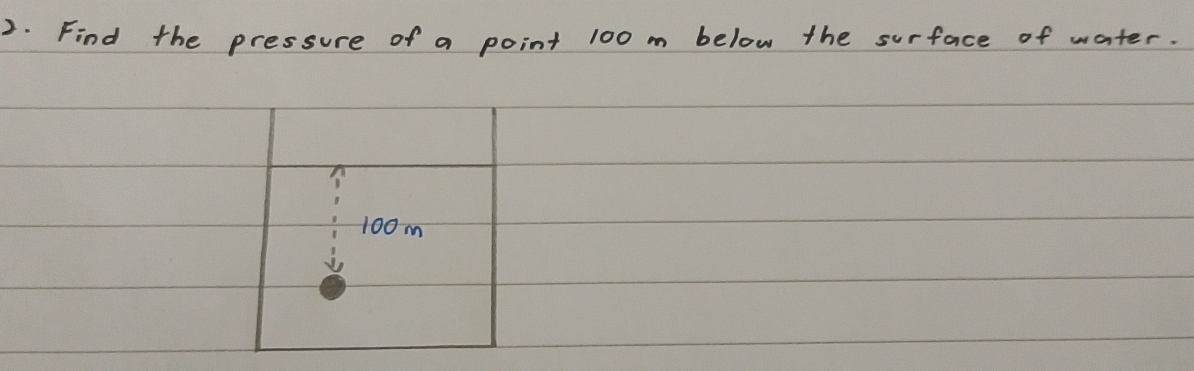 2. Find the pressure of a point 100 m below the surface of water.
100 m